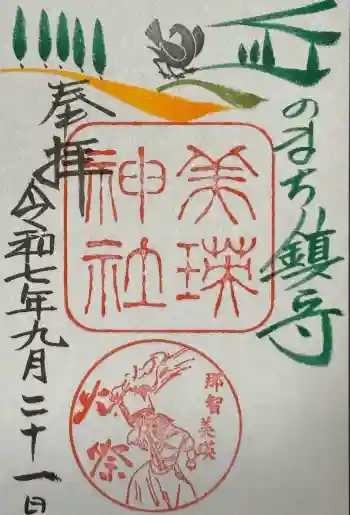 のまち鎮守
奉拝
美瑛
神社
令和七年九月二十一日
那智美瑛
火祭